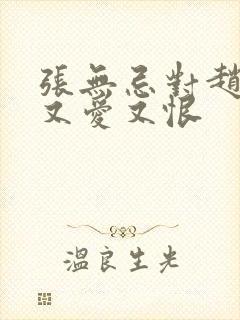 張無忌對趙
又愛又恨
溫良生光